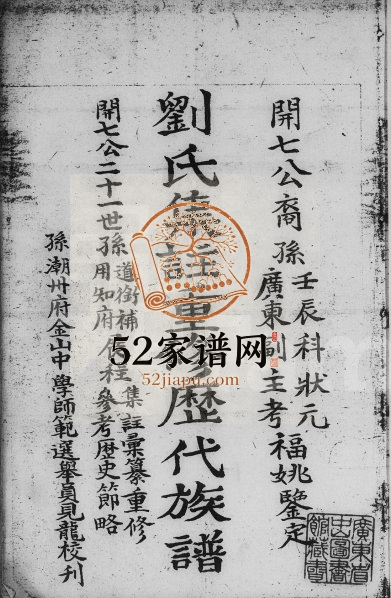 開七公裔孫
壬辰科狀元
廣東副主考
福姚鑒定
劉氏集註重修歷代族譜
開七公二十一世孫
道銜補
用知府
程
集註彙纂重修
參考歷史節略
孫潮州府金山中學師範選舉員見龍校刊
52家谱网
52jiapu.com
廣東省
圖書
館藏書